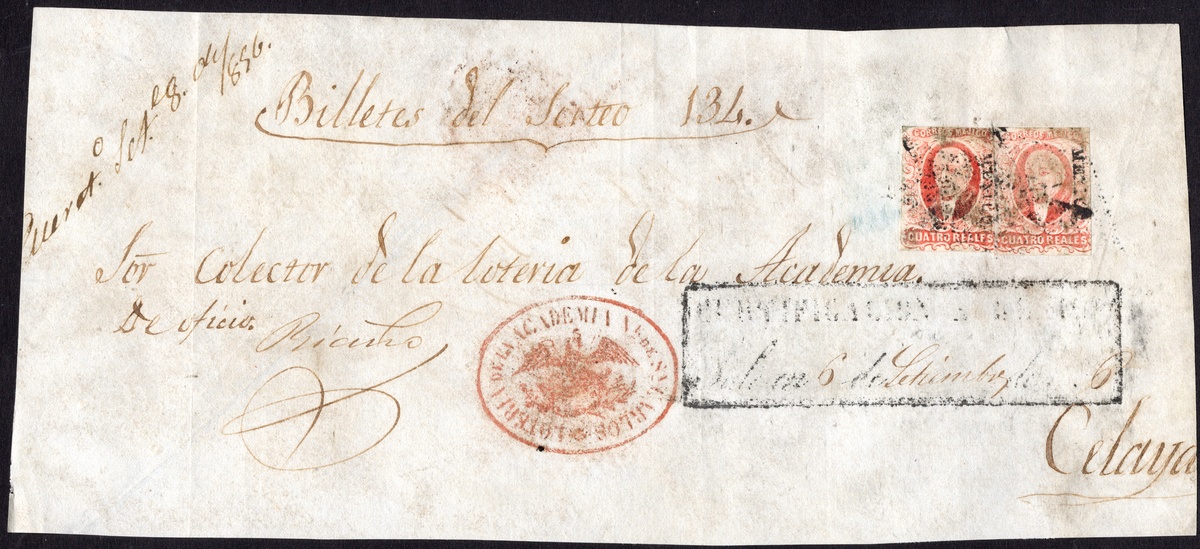 Queret.o Set.e 8. de/856.
Billetes del Sorteo 134.
CORREOS MEJICO
CORREOS MEJICO
MEXICO
CUATRO REALES
CUATRO REALES
Sor Colector de la loteria de la Academia.
De oficio.
Riaño
LOTERIA DE LA ACADEMIA NL. DE SAN CARLOS
CERTIFICACION
6 de Setiembre de 6
Celaya